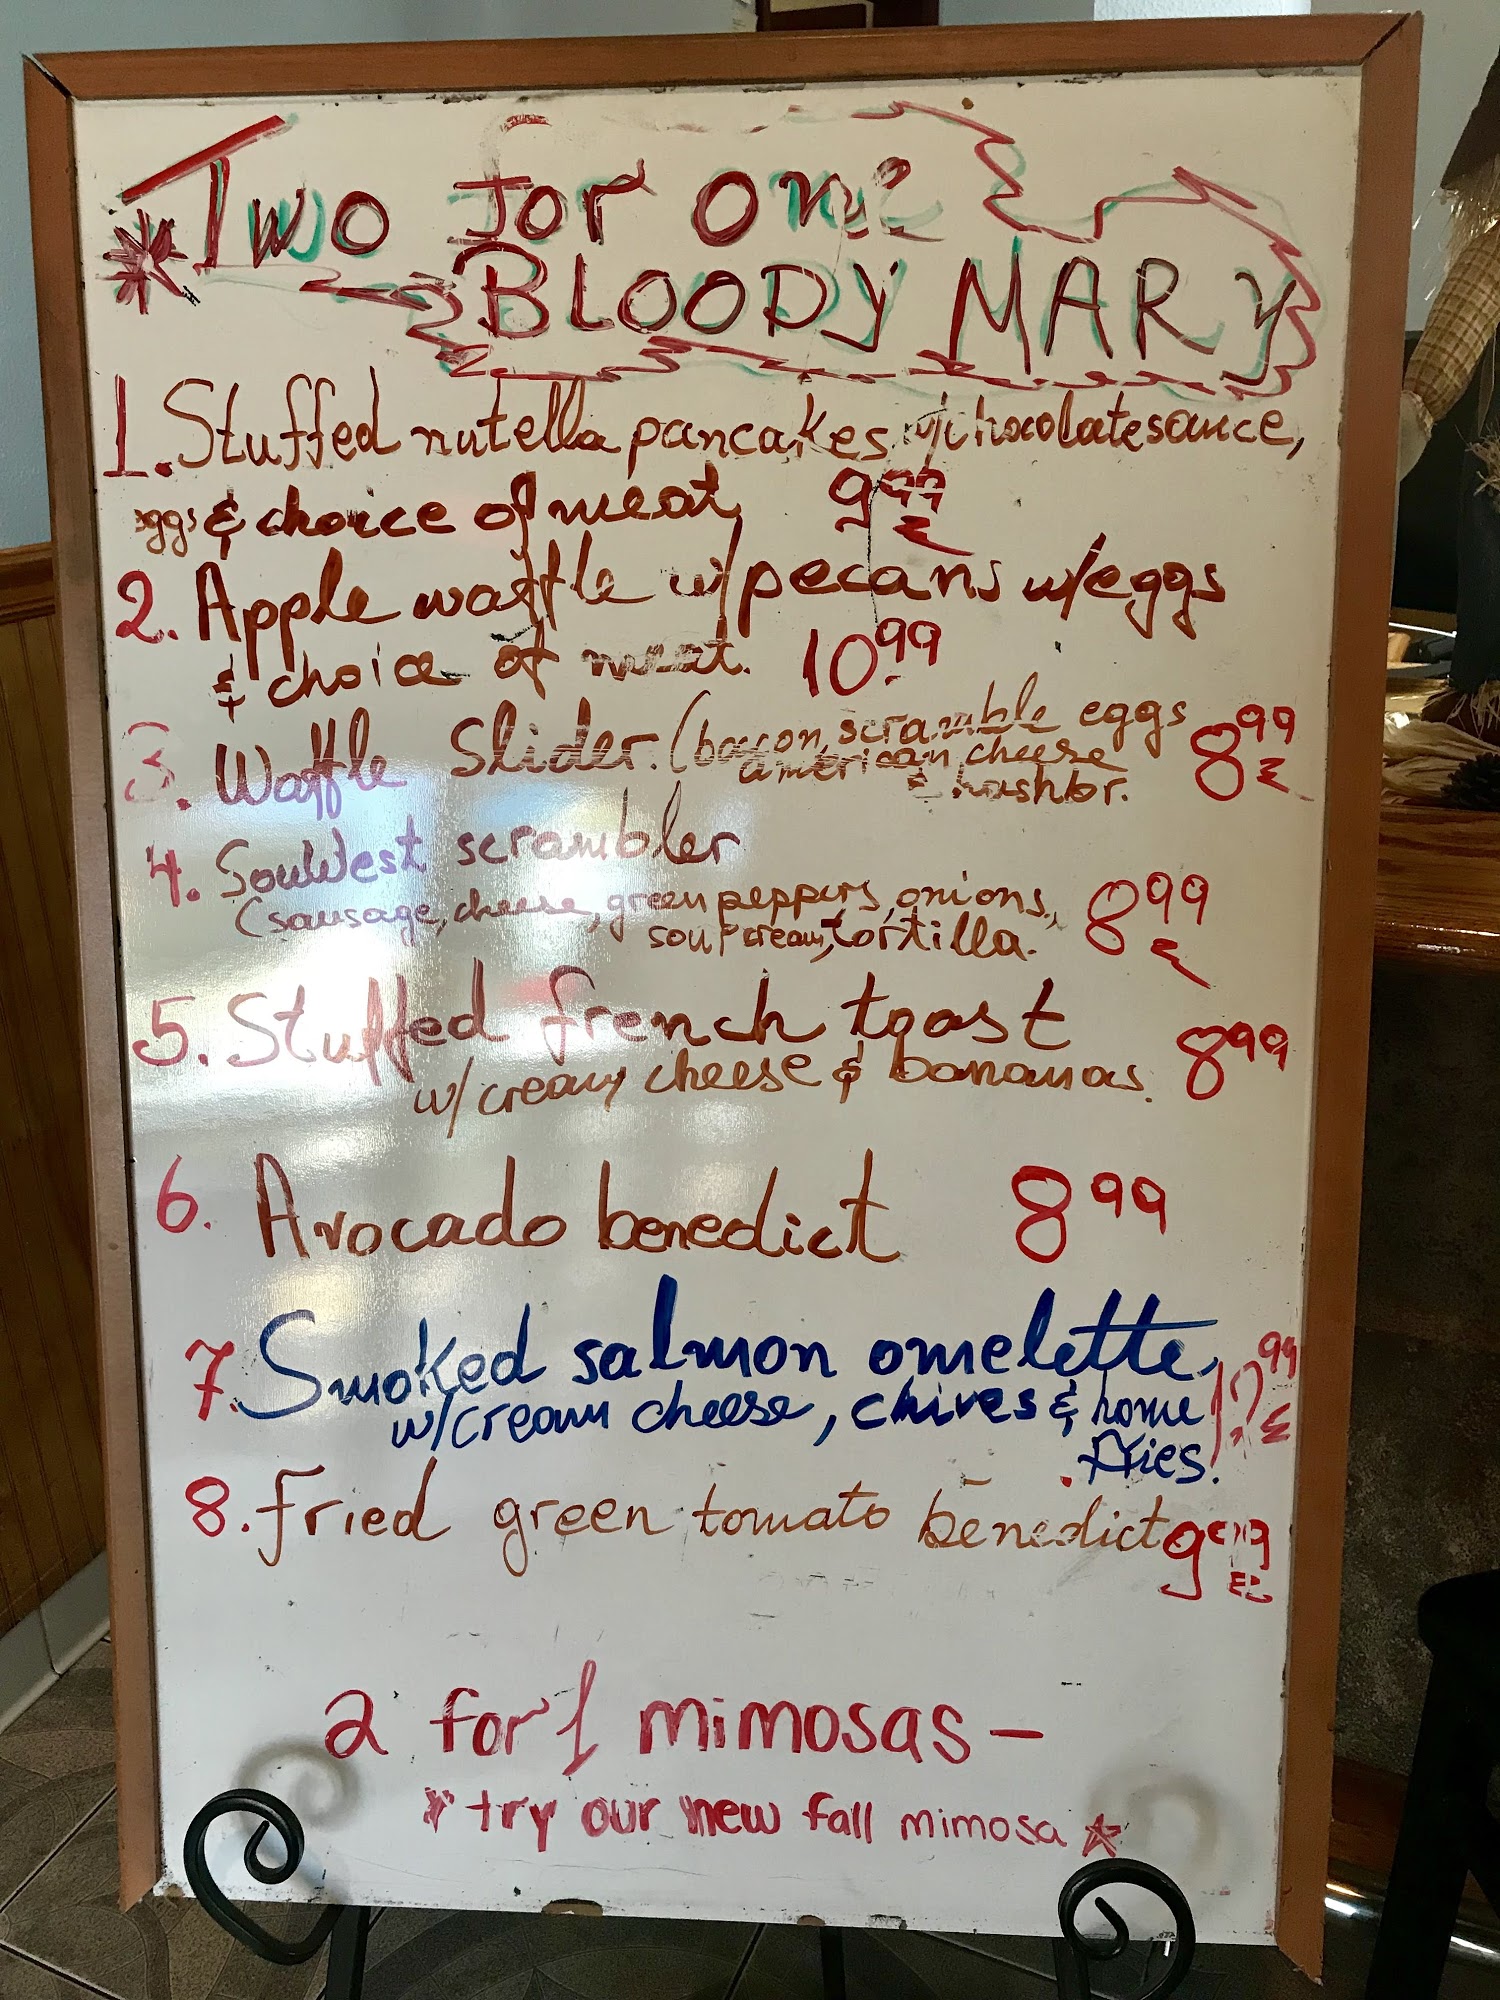 * Two for one
BLOODY MARY
1. Stuffed nutella pancakes w/chocolate sauce,
eggs & choice of meat 9.99
2. Apple waffle w/pecans w/eggs
& choice of meat. 10.99
3. Waffle Slider. (bacon, scramble eggs 8.99
american cheese
& hashbr.
4. SouWest scrambler
(sausage, cheese, green peppers, onions, 8.99
sour cream, tortilla.
5. Stuffed french toast 8.99
w/cream cheese & bananas.
6. Avocado benedict 8.99
7. Smoked salmon omelette
w/cream cheese, chives & home
fries.
8. Fried green tomato benedict 9.99
2 for 1 mimosas -
* try our new fall mimosa *